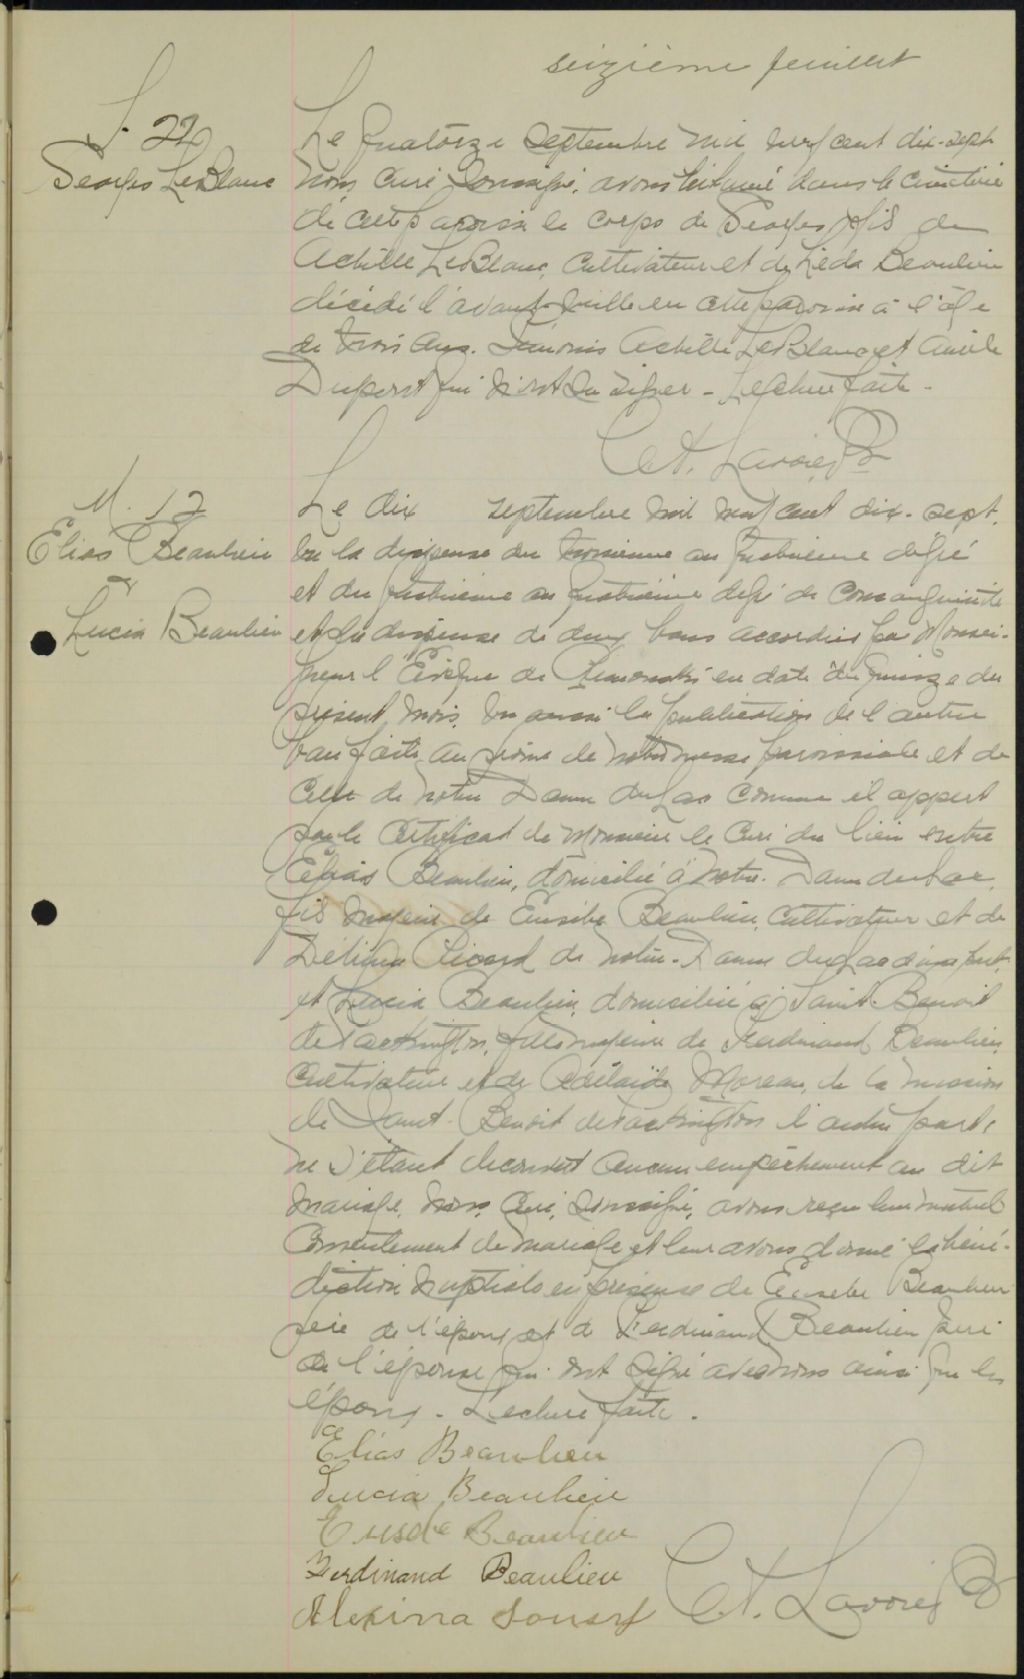 seizième feuillet
S. 22
Georges LeBlanc
Le quatorze septembre mil neuf cent dix-sept
nous curé soussigné, avons inhumé dans le cimetière
de cette paroisse le corps de Georges, fils de
Achille LeBlanc, cultivateur et de Léda Beaulieu
décédé l'avant-veille en cette paroisse à l'âge
de trois ans. Témoins Achille LeBlanc et
qui n'ont su signer - Lecture faite -
Lavoie, Ptre
M. 12
Elias Beaulieu
&
Lucia Beaulieu
Le dix septembre mil neuf cent dix-sept,
vu la dispense du troisième au quatrième degré
et du quatrième au quatrième degré de consanguinité
et la dispense de deux bans accordées par Monsei-
gneur l'Evêque de Rimouski en date du quinze du
présent mois, vu aussi la publication de l'autre
ban faite au prône de notre messe paroissiale et de
celle de Notre Dame du Lac comme il appert
par le certificat de Monsieur le Curé du lieu entre
Élias Beaulieu, domicilié à Notre-Dame du Lac,
fils majeur de Eusèbe Beaulieu, cultivateur et de
Délima Picard de Notre-Dame du Lac d'une part,
et Lucia Beaulieu, domiciliée à Saint-Benoit
de Packington, fille majeure de Ferdinand Beaulieu,
cultivateur et de Adélaïde Moreau, de la mission
de Saint-Benoit de Packington l'autre part,
ne s'étant découvert aucun empêchement au dit
mariage, nous, Curé, soussigné, avons reçu leur mutuel
consentement de mariage et leur avons donné la béné-
diction nuptiale en présence de Eusèbe Beaulieu
père de l'époux et de Ferdinand Beaulieu père
de l'épouse qui ont signé avec nous ainsi que les
époux - Lecture faite.
Elias Beaulieu
Lucia Beaulieu
Beaulieu
Ferdinand Beaulieu
Alexina
Lavoie, Ptre